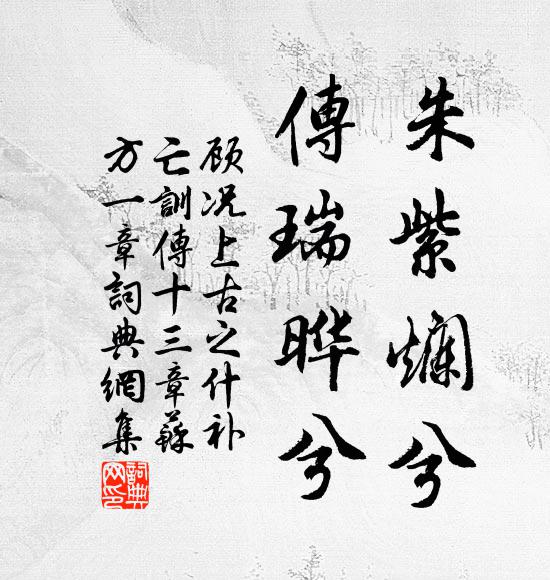 朱紫爛兮
傳瑞晔兮
顾况上古之什补
亡訓傳十三章蘇
方一章詞典網集
詞典網印